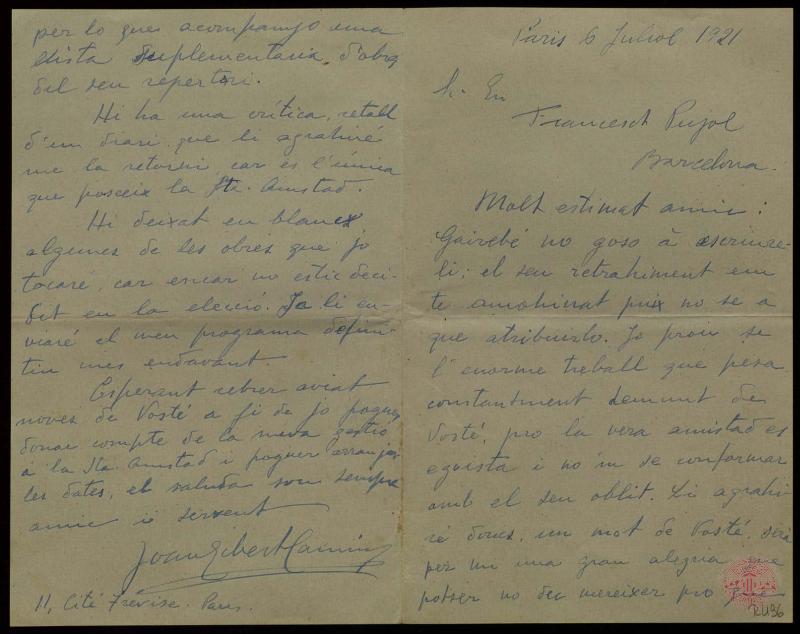 Paris 6 Juliol 1921
Sr. En
Francesch Pujol
Barcelona.
Molt estimat amic:
Gairebé no goso à escriure-
li; el seu retrahiment em
te amohinat puix no se a
que atribuirlo. Jo prou se
l'enorme treball que pesa
constantment demunt de
Vosté, pro la vera amistad es
egoista i no'm se conformar
amb el seu oblit. Li agrahi-
ré doncs, un mot de Vosté, sera
per mi una gran alegria que
potser no dec mereixer pro que
R496
per lo que acompanyo una
llista suplementaria, d'obres
del seu repertori.
Hi ha una crítica, retall
d'un diari que li agrahiré
me la retorni car es l'única
que posceix la Sta. Amistad.
Hi deixat en blanc
algunes de les obres que jo
tocaré, car encar no estic deci-
dit en la elecció. Ja li en-
viaré el meu programa defini-
tiu mes endavant.
Esperant rebrer aviat
noves de Vosté a fi de jo poguer
donar compte de la meva gestió
à la Sta. Amistad i poguer arranjar
les dates, el saluda son sempre
amic i servent
Joan Gibert Camins
11, Cité Trévise. Paris.